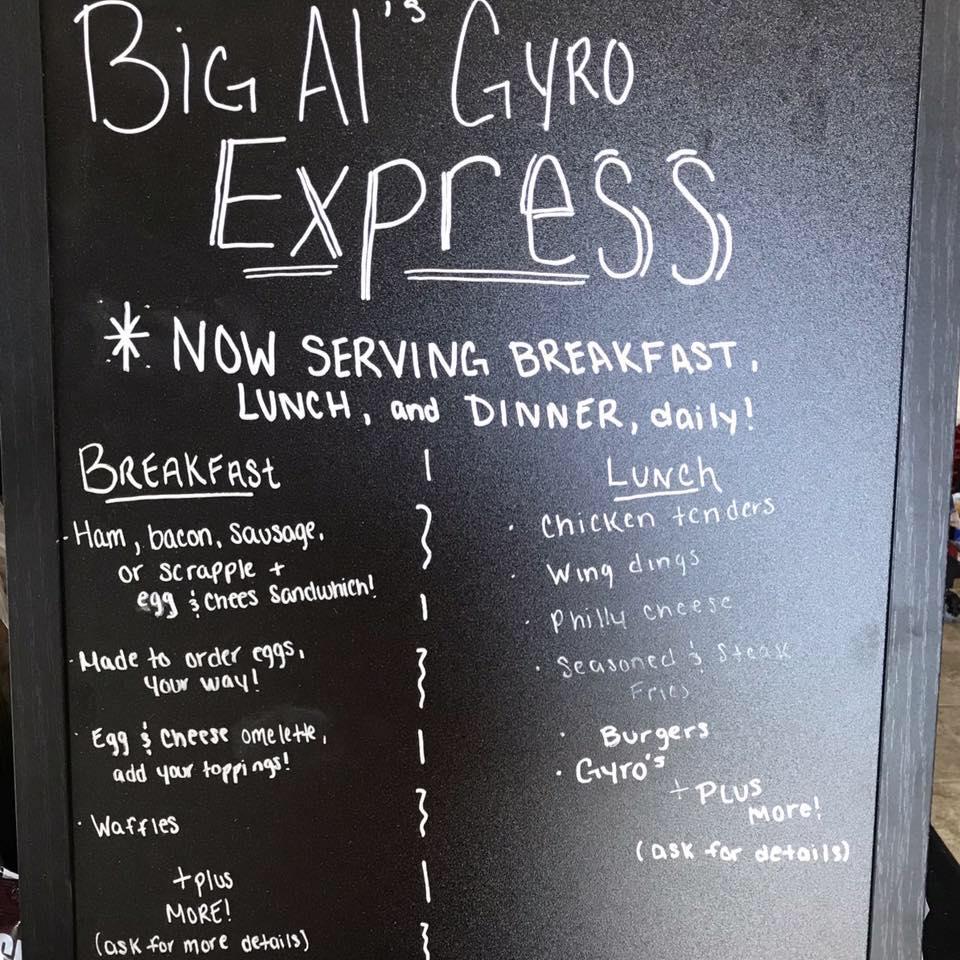 BIG Al's GYRO
Express
* NOW SERVING BREAKFAST,
LUNCH, and DINNER, daily!
BREAKFAST
· Ham, bacon, sausage,
or scrapple +
egg & chees sandwhich!
· Made to order eggs,
your way!
· Egg & cheese omelette,
add your toppings!
· Waffles
+plus
MORE!
(ask for more details)
Lunch
· Chicken tenders
· Wing dings
· Philly cheese
· Seasoned & Steak
Fries
· Burgers
· Gyro's
+ PLUS
More!
(ask for details)